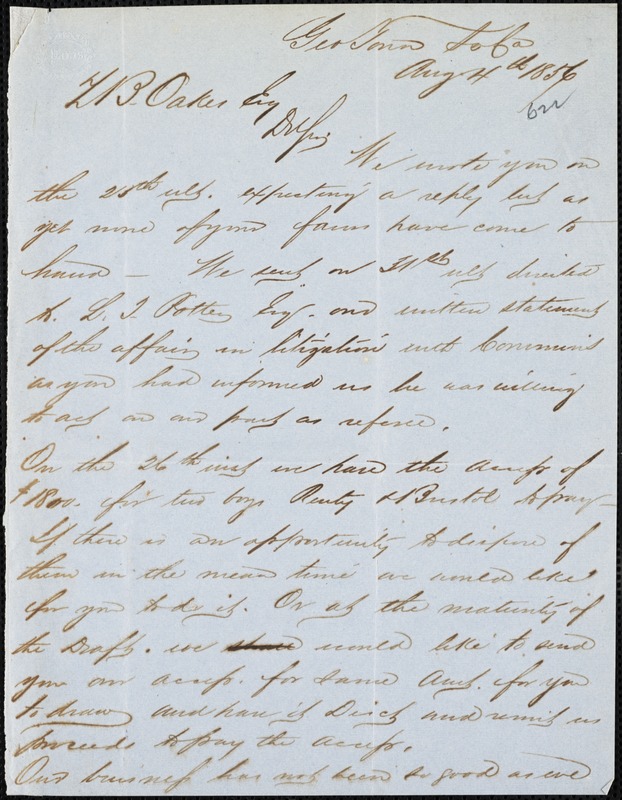 Geo Town So Ca
Aug 4th 1856
622
Z B. Oakes Esq
Dr Sir
We wrote you on
the 25th ult. expecting a reply but as
yet none of your favors have come to
hand — We sent on 31st ult directed
to L. T. Potter Esq. our written statement
of the affair in litigation with Cornmins
as you had informed us he was willing
to act on our part as referee.
On the 26th inst we have the accep of
$1800. for two boys Renty & Bristol to pay—
If there is an opportunity to dispose of
them in the mean time we would like
for you to do it. Or at the maturity of
the Draft. we would like to send
you our accep. for same Amt. for you
to draw and have it Disct and remit us
proceeds to pay the accep.
Our business has not been so good as we